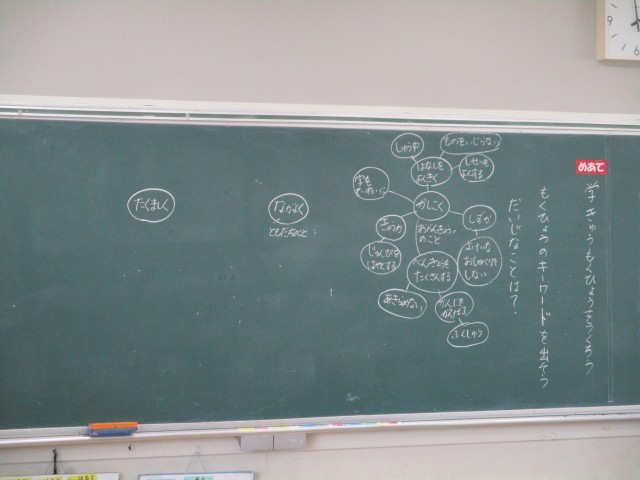 めあて
学きゅうもくひょうをつくろう
もくひょうのキーワードを出そう
だいじなことは？
かしこく
おべんきょうのこと
はなしを
よくきく
しゅう中
ものをいじらない
しせいを
よくする
字を
ていねいに
しずか
よけいな
おしゃべりを
しない
じゅんびを
はやくする
べんきょうを
たくさんする
あきらめない
かんじを
がんばる
ふくしゅう
なかよく
ともだちのこと
たくましく
9
6